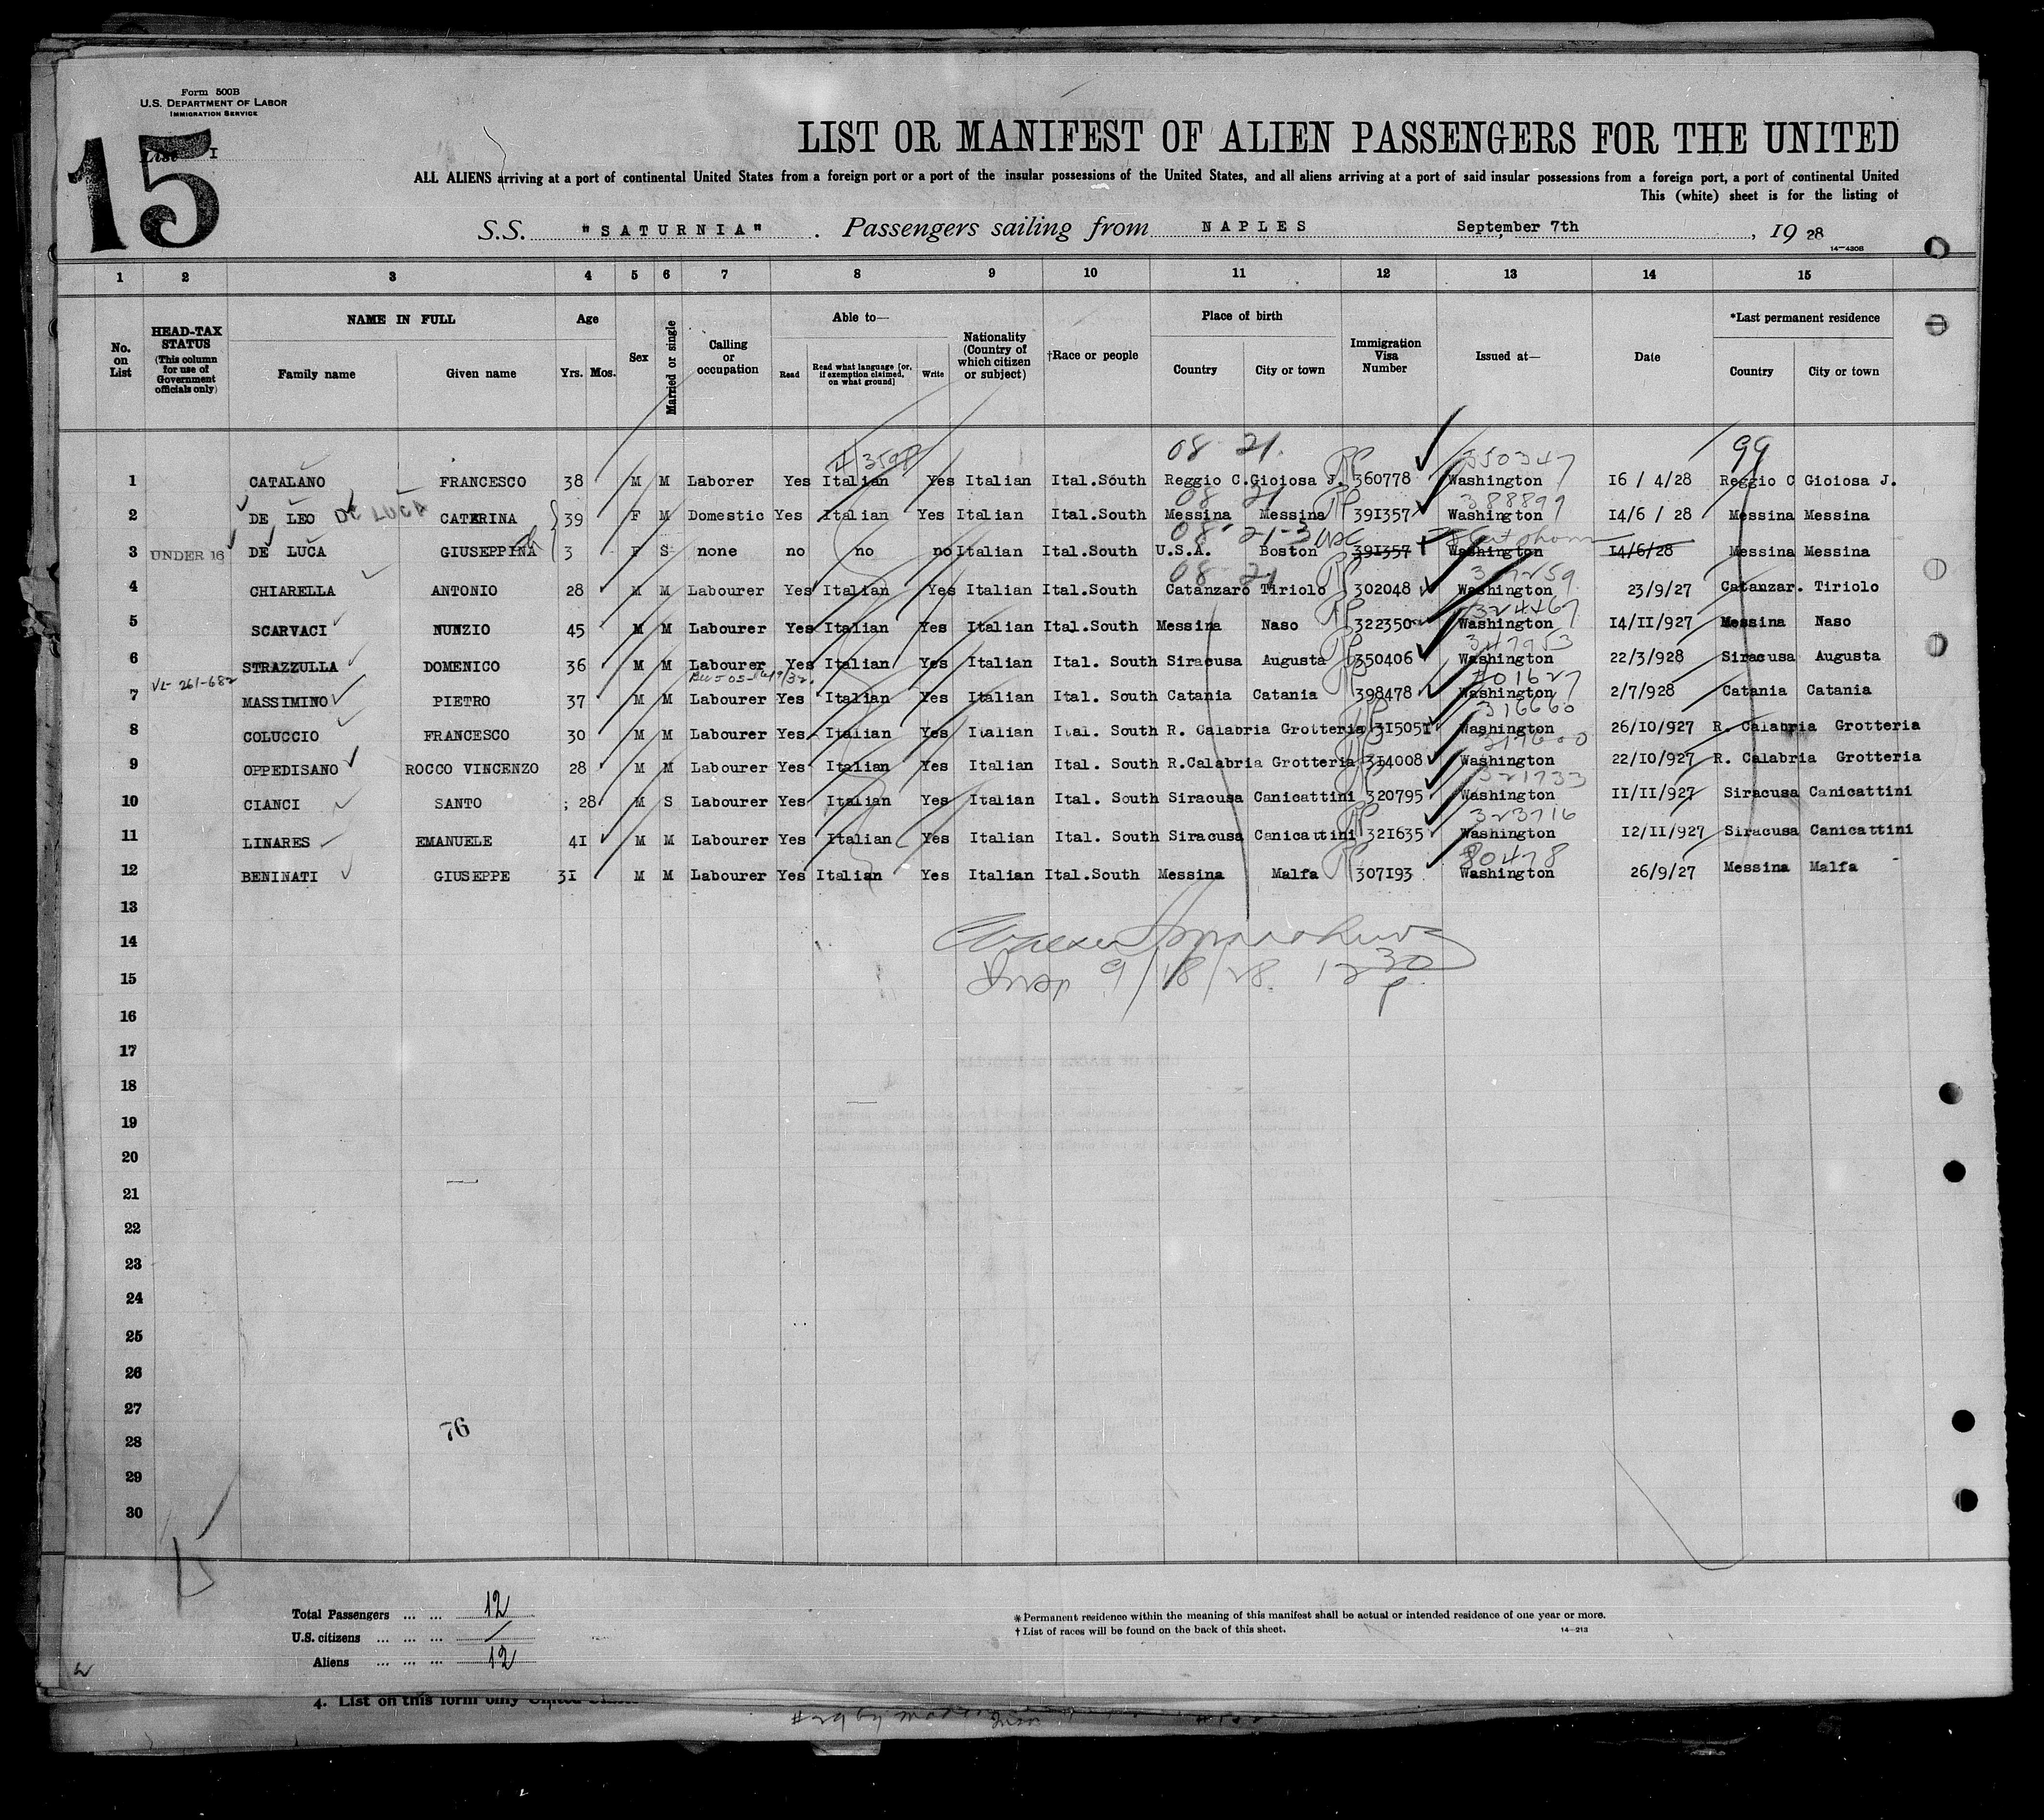 Form 500B
U.S. DEPARTMENT OF LABOR
IMMIGRATION SERVICE
List I
15
LIST OR MANIFEST OF ALIEN PASSENGERS FOR THE UNITED
ALL ALIENS arriving at a port of continental United States from a foreign port or a port of the insular possessions of the United States, and all aliens arriving at a port of said insular possessions from a foreign port, a port of continental United
This (white) sheet is for the listing of
S.S. "SATURNIA". Passengers sailing from NAPLES September 7th, 1928
14-430B
1 2 3 4 5 6 7 8 9 10 11 12 13 14 15
No. on List
HEAD-TAX STATUS (This column for use of Government officials only)
NAME IN FULL Family name Given name
Age Yrs. Mos.
Sex
Married or single
Calling or occupation
Able to— Read Read what language [or, if exemption claimed, on what ground] Write
Nationality (Country of which citizen or subject)
†Race or people
Place of birth Country City or town
Immigration Visa Number
Issued at—
Date
*Last permanent residence Country City or town
08 21. 350347 99
1 CATALANO FRANCESCO 38 M M Laborer Yes Italian Yes Italian Ital.South Reggio C. Gioiosa J. 360778 Washington 16 / 4/28 Reggio C Gioiosa J.
08 21 388899
2 DE LEO DE LUCA CATERINA 39 F M Domestic Yes Italian Yes Italian Ital.South Messina Messina 391357 Washington 14/6 / 28 Messina Messina
08-21-3 USC
3 UNDER 16 DE LUCA GIUSEPPINA 3 F S none no no no Italian Ital.South U.S.A. Boston 391357 Washington 14/6/28 Messina Messina
08 21
4 CHIARELLA ANTONIO 28 M M Labourer Yes Italian Yes Italian Ital.South Catanzaro Tiriolo 302048 Washington 23/9/27 Catanzar. Tiriolo
324467
5 SCARVACI NUNZIO 45 M M Labourer Yes Italian Yes Italian Ital.South Messina Naso 322350 Washington 14/11/927 Messina Naso
347953
6 STRAZZULLA DOMENICO 36 M M Labourer Yes Italian Yes Italian Ital. South Siracusa Augusta 350406 Washington 22/3/928 Siracusa Augusta
VL-261-682 401627
7 MASSIMINO PIETRO 37 M M Labourer Yes Italian Yes Italian Ital. South Catania Catania 398478 Washington 2/7/928 Catania Catania
316660
8 COLUCCIO FRANCESCO 30 M M Labourer Yes Italian Yes Italian Ital. South R. Calabria Grotteria 315051 Washington 26/10/927 R. Calabria Grotteria
9 OPPEDISANO ROCCO VINCENZO 28 M M Labourer Yes Italian Yes Italian Ital. South R.Calabria Grotteria 314008 Washington 22/10/927 R. Calabria Grotteria
321733
10 CIANCI SANTO 28 M S Labourer Yes Italian Yes Italian Ital. South Siracusa Canicattini 320795 Washington 11/11/927 Siracusa Canicattini
323716
11 LINARES EMANUELE 41 M M Labourer Yes Italian Yes Italian Ital. South Siracusa Canicattini 321635 Washington 12/11/927 Siracusa Canicattini
80478
12 BENINATI GIUSEPPE 31 M M Labourer Yes Italian Yes Italian Ital.South Messina Malfa 307193 Washington 26/9/27 Messina Malfa
13
14
15
Insp 9/18/28. 12 30 P.
16
17
18
19
20
21
22
23
24
25
26
27
76
28
29
30
Total Passengers ... ... 12
U.S. citizens ... ... ... /
Aliens ... ... ... 12
* Permanent residence within the meaning of this manifest shall be actual or intended residence of one year or more.
† List of races will be found on the back of this sheet.
14-213
4. List on this form only United States